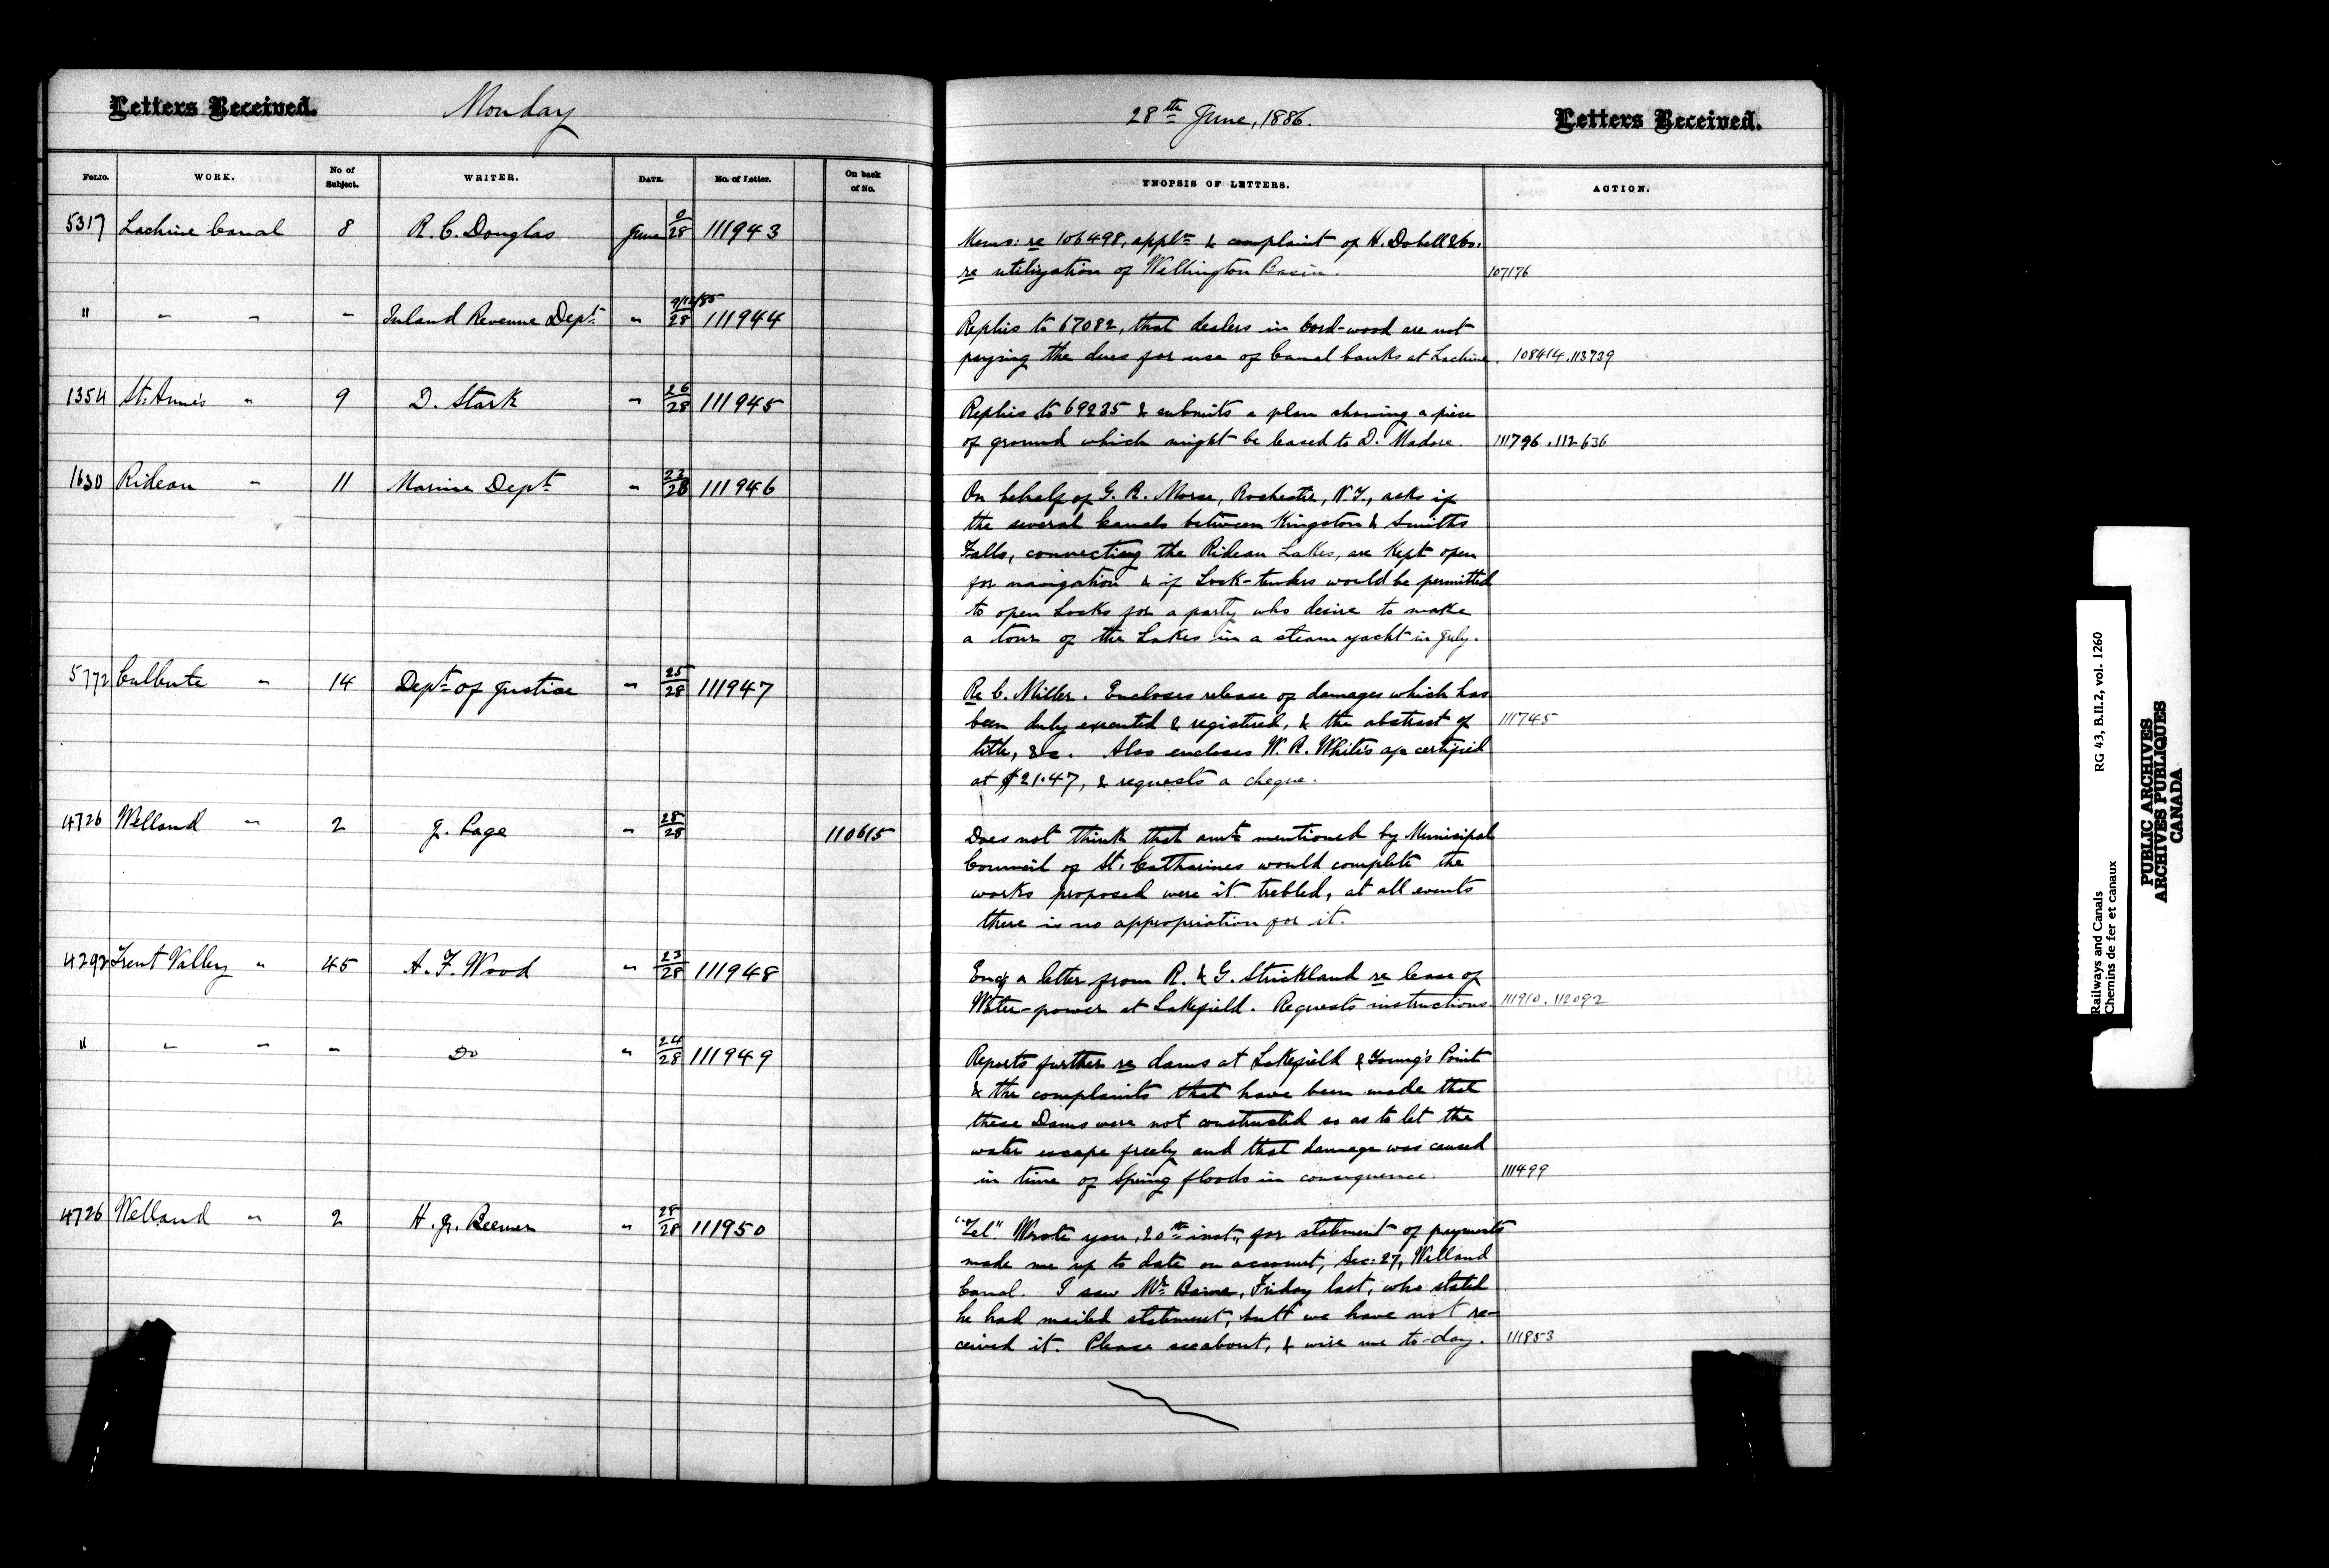 Letters Received.
Monday
FOLIO. WORK. No of Subject. WRITER. DATE. No. of Letter. On back of No.
5317 Lachine Canal 8 R. C. Douglas June 0/28 111943
" " " " Inland Revenue Dept. " 9/12/85 28 111944
1354 St. Anne's " 9 D. Stark " 26/28 111945
1630 Rideau " 11 Marine Dept. " 22/28 111946
5772 Culbute " 14 Dept. of Justice " 25/28 111947
4726 Welland " 2 J. Page " 28/28 110615
4292 Trent Valley " 45 A. F. Wood " 23/28 111948
" " " " Do " 24/28 111949
4726 Welland " 2 H. J. Beemer " 28/28 111950
28th June, 1886.
Letters Received.
SYNOPSIS OF LETTERS. ACTION.
Memo: re 106498, appln & complaint of H. Dobell & Co.
re utilization of Wellington Basin. 107176
Replies to 67082, that dealers in Cord-wood are not
paying the dues for use of Canal banks at Lachine. 108414.113739
Replies to 69235 & submits a plan showing a piece
of ground which might be leased to D. Madore. 111796.112636
On behalf of G. R. Morse, Rochester, N.Y., asks if
the several Canals between Kingston & Smiths
Falls, connecting the Rideau Lakes, are kept open
for navigation & if Lock-tenders would be permitted
to open Locks for a party who desire to make
a tour of the Lakes in a steam yacht in July.
Re C. Miller. Encloses release of damages which has
been duly executed & registered, & the abstract of 111745
title, &c. Also encloses W. R. White's a/c certified
at $21.47, & requests a cheque.
Does not think that amt. mentioned by Municipal
Council of St. Catharines would complete the
works proposed were it trebled, at all events
there is no appropriation for it.
Encg a letter from R. & G. Strickland re lease of
Water-power at Lakefield. Requests instructions. 111910.112092
Reports further re dams at Lakefield & Young's Point
& the complaints that have been made that
these Dams were not constructed so as to let the
water escape freely and that damage was caused
in time of Spring floods in consequence. 111499
"Tel". Wrote you, 20th inst., for statement of payments
made me up to date on account, Sec: 27, Welland
Canal. I saw Mr. Baine, Friday last, who stated
he had mailed statement, but we have not re-
ceived it. Please see about, & wire me to-day. 111853
Railways and Canals RG 43, B.II.2, vol. 1260
Chemins de fer et canaux
PUBLIC ARCHIVES
ARCHIVES PUBLIQUES
CANADA